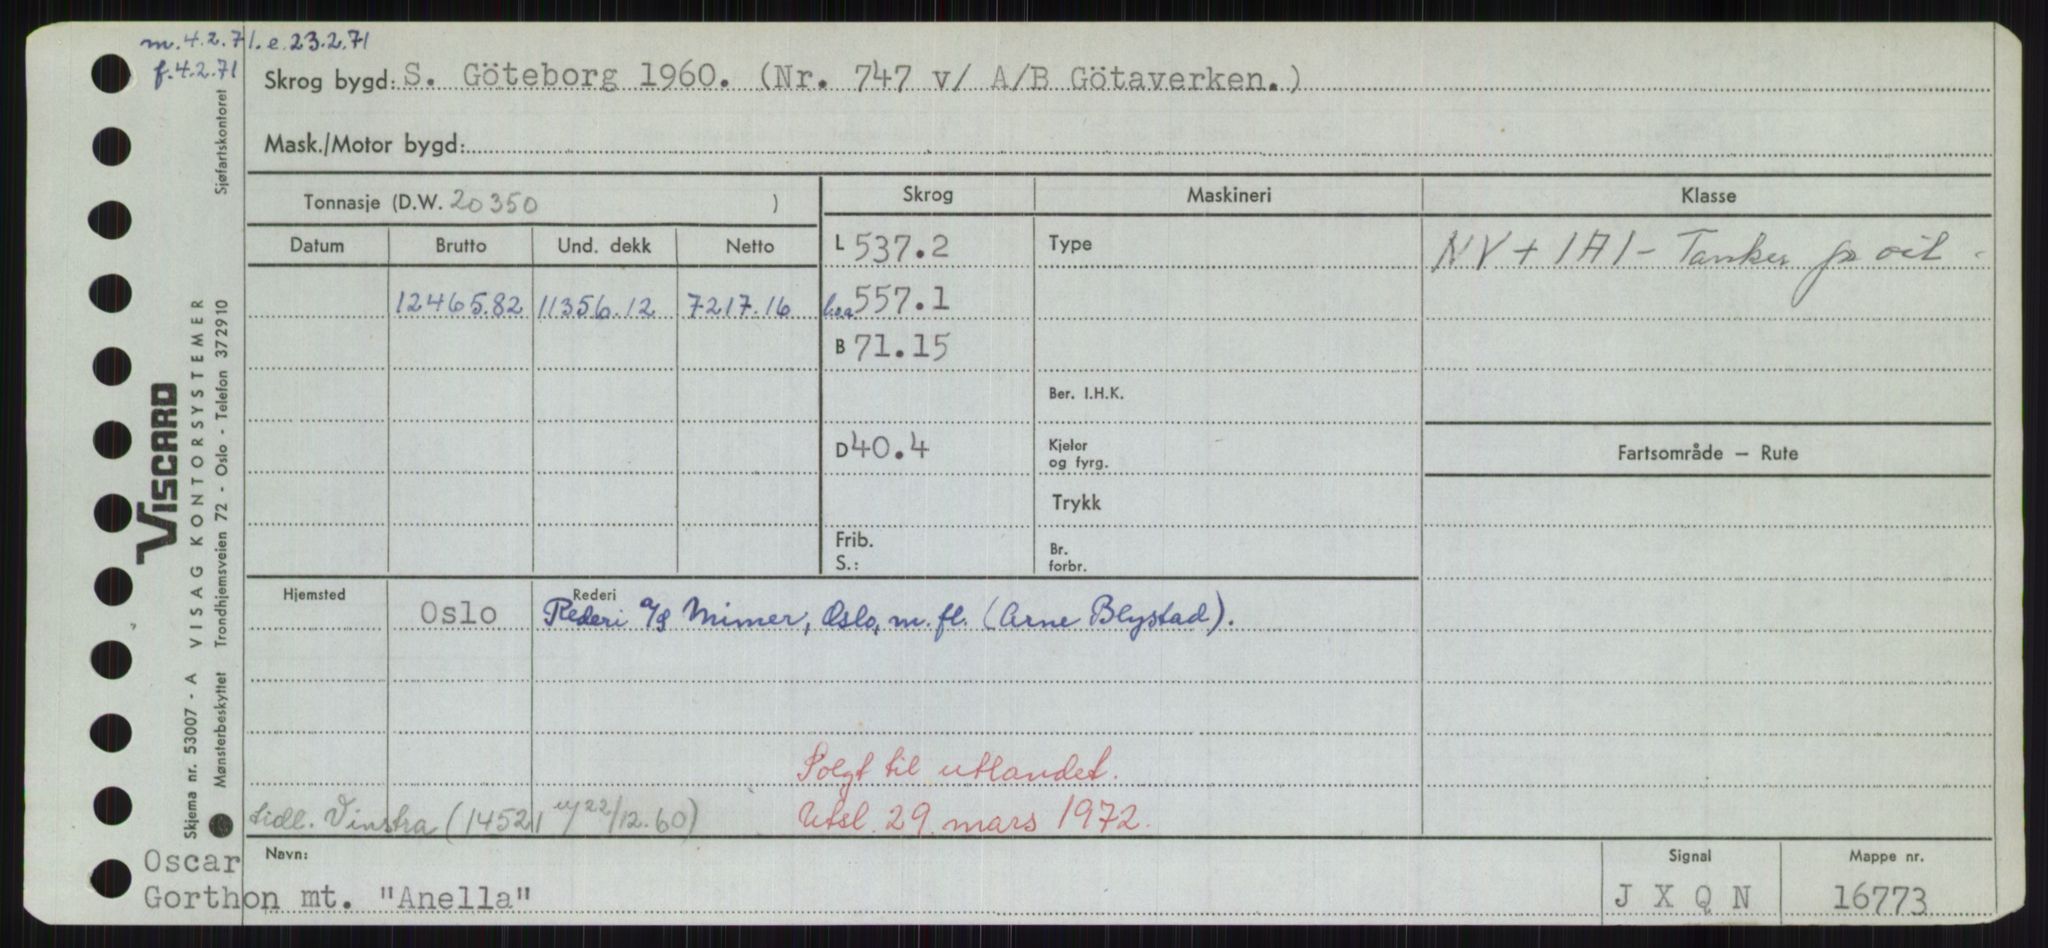 m. 4.2.71. e. 23.2.71
f. 4.2.71
Skrog bygd: S. Göteborg 1960. (Nr. 747 v/ A/B Götaverken.)
Mask./Motor bygd:
Tonnasje (D.W. 20350 )
Skrog Maskineri Klasse
Datum Brutto Und. dekk Netto
L 537.2 Type NV + 1A1 - Tanker for oil -
12465.82 11356.12 7217.16 l.o.a. 557.1
B 71.15
Ber. I.H.K.
D 40.4 Kjeler og fyrg.
Fartsområde — Rute
Trykk
Frib.
S.:
Br. forbr.
Hjemsted Oslo
Rederi
Rederi A/S Mimer, Oslo, m. fl. (Arne Blystad).
Solgt til utlandet.
Utsl. 29. mars 1972.
tidl. Vinstra (14521 22/12.60)
Oscar
Navn:
Gorthon mt. "Anella"
Signal
J X Q N
Mappe nr.
16773
Skjema nr. 53007 - A VISAG KONTORSYSTEMER
VISCARD
Mønsterbeskyttet Trondhjemsveien 72 - Oslo - Telefon 372910 Sjøfartskontoret